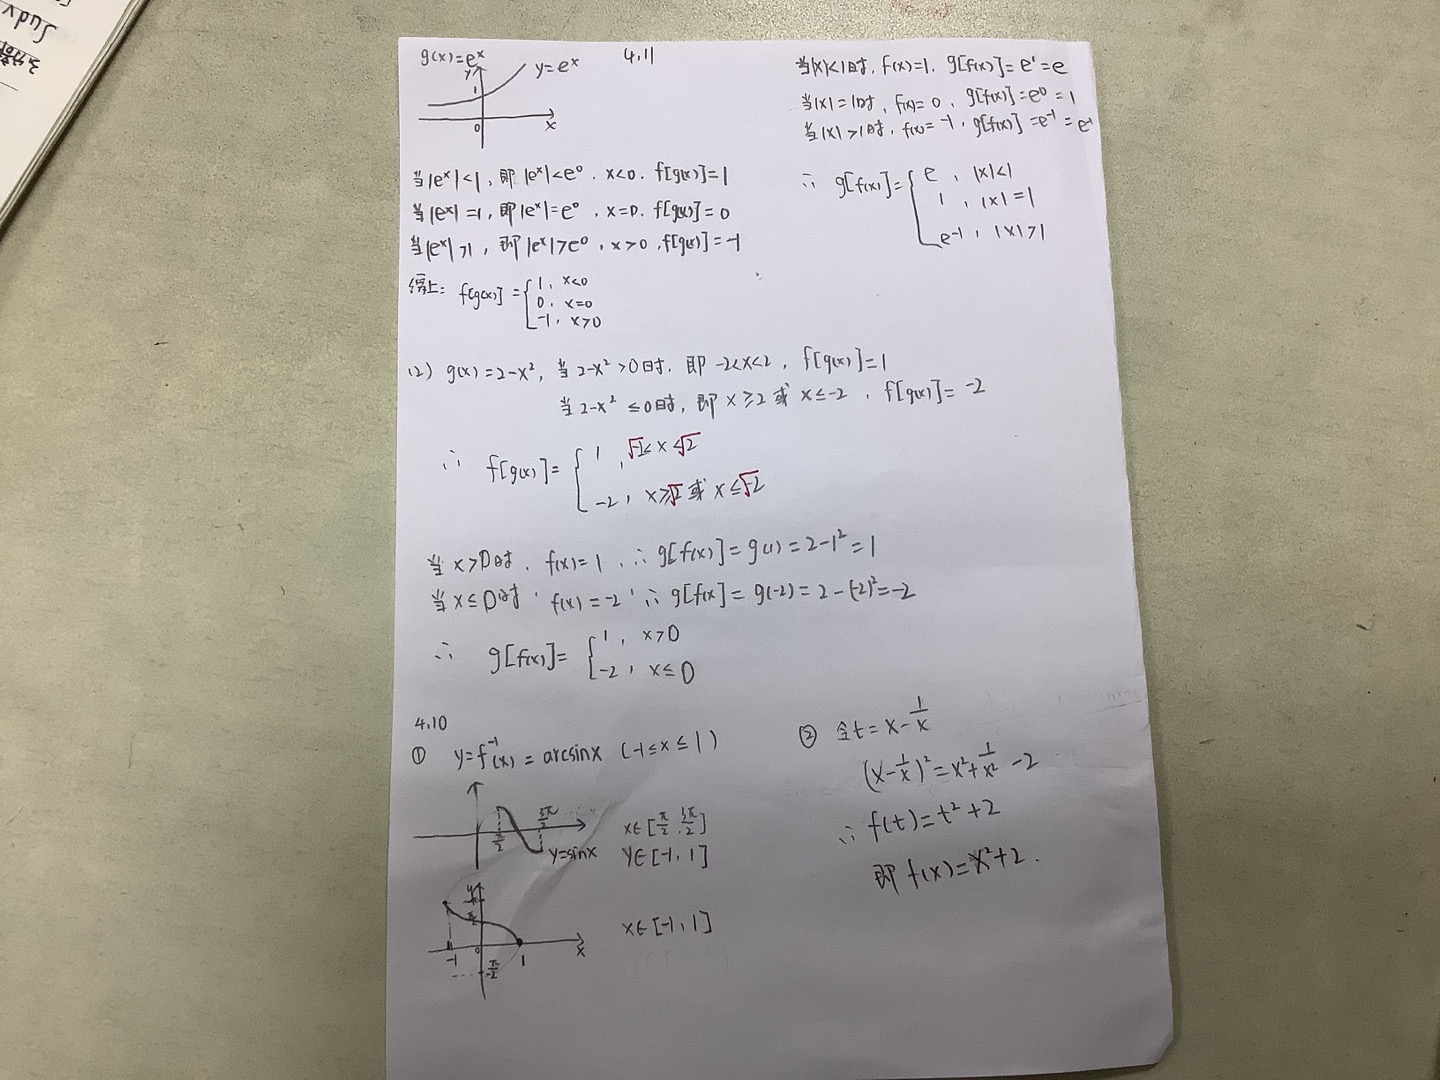 Judv
g(x)=eˣ
4.11
y
y=eˣ
1
0
x
当|eˣ|<1,即|eˣ|<e⁰,x<0,f[g(x)]=1
当|eˣ|=1,即|eˣ|=e⁰,x=0,f[g(x)]=0
当|eˣ|>1,即|eˣ|>e⁰,x>0,f[g(x)]=-1
综上: f[g(x)]={1, x<0
0, x=0
-1, x>0
当|x|<1时,f(x)=1,g[f(x)]=e¹=e
当|x|=1时,f(x)=0,g[f(x)]=e⁰=1
当|x|>1时,f(x)=-1,g[f(x)]=e⁻¹=e⁻¹
∴ g[f(x)]={e, |x|<1
1, |x|=1
e⁻¹, |x|>1
(2) g(x)=2-x²,当2-x²>0时,即-2<x<2,f[g(x)]=1
当2-x²≤0时,即x≥2或x≤-2,f[g(x)]=-2
∴ f[g(x)]={1, √-2≤x≤√2
-2, x≥√2或x≤√-2
当x>0时,f(x)=1,∴g[f(x)]=g(1)=2-1²=1
当x≤0时,f(x)=-2,∴g[f(x]=g(-2)=2-(-2)²=-2
∴ g[f(x)]={1, x>0
-2, x≤0
4.10
① y=f⁻¹(x)=arcsinx (-1≤x≤1)
π/2
3π/2
y=sinx
x∈[π/2,3π/2]
y∈[-1,1]
y
π
π/2
-1
0
1
x
-π/2
x∈[-1,1]
② 令t=x-1/x
(x-1/x)²=x²+1/x²-2
∴ f(t)=t²+2
即f(x)=x²+2.